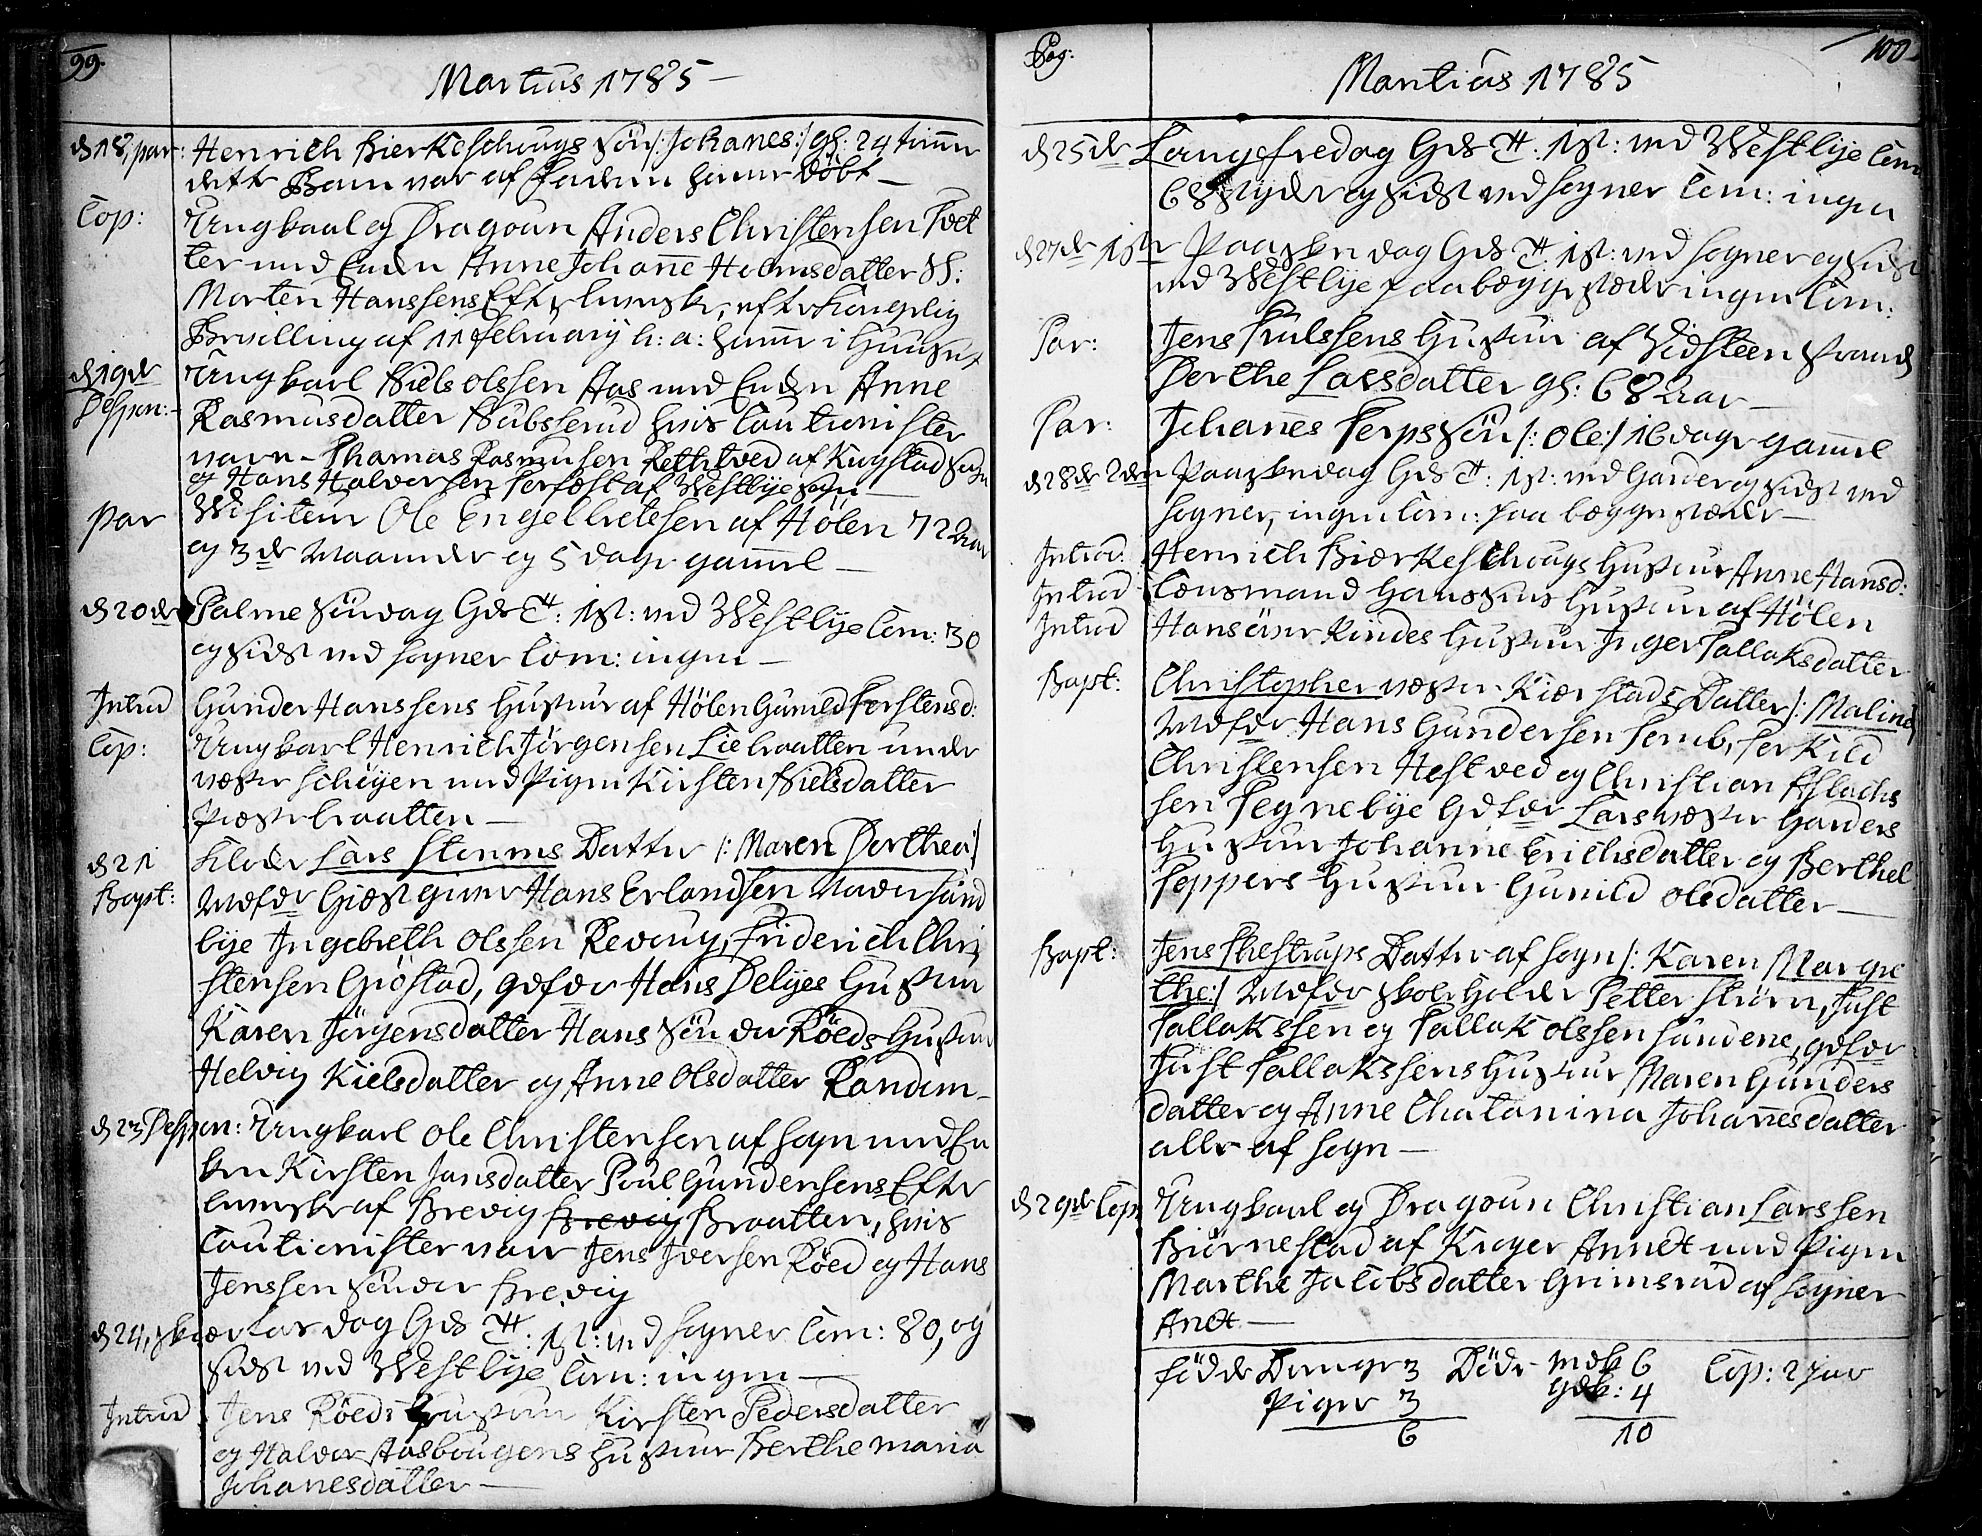 99.
Martius 1785 –
d 18, par: Henrich Bierkeschougs Sön /: Johanes :/ gl: 24 timer
dette Barn var af Faderen hiemme döbt –
Cop: Ungkarl og Dragoun Anders Christensen Tvet
ter med Enken Anne Johanne Holmsdatter Sl:
Morten Hanssens Efterleverske, efter Kongelig
Bevilling af 11 februarij h: a: hiemme i Huuset
d 19de Ungkarl Niels olssen Aas med Enken Anne
Despon: Rasmusdatter Nubberud hvis Cautionister
vare – Thomas Rasmusen Rethtved af Krogstad Sogn
og Hans Halvorsen af Westbye sogn –
par Visiteur Ole Engelbretsen af Hölen 72 Aar
og 3de Maaneder og 5 dage gammel –
d 20de Palme Söndag Gds T: 1st: ved Westbye Com: 30
og sidst ved Sogner Com: ingen –
Introd Gunder Hanssens Hustrue af Hölen Gunild Torstensd:
Cop: Ungkarl Henrich Jörgensen Liebraatten under
vester Schöyen med Pigen Kirsten Nielsdatter
Præstebraatten –
d 21 Kloker Lars Storms Datter /: Maren Dorthea :/
Bapt: Mdfdr Giestgiver Hans Erlandsen Nedersund
bye Ingebreth Olssen Revoug, Friderich Chri
stensen Giöstad, qdfdr Hans Delijes Hustrue
Karen Jörgensdatter Hans Sönder Röeds Hustrue
Helvig Kielsdatter og Anne Olsdatter Randem –
d 23 Despon: Ungkarl Ole Christensen af Sogn med En
ken Kirsten Jansdatter Poul Gundersens Efter
leverske af Brevig Brevig Braatten, hvis
Cautionister vare Jens Iversen Röed og Hans
Jenssen Sönder Brevig
d 24, Skiertors dag Gds T: 1st: ved Sogner Com: 80, og
sidst ved Westbye Com: ingen –
Introd Jens Röeds Hustrue Kirsten Pedersdatter
og Halvor Aasbougens Hustrue Berthe maria
Johanesdatter –
Pag: 100
Martius 1785
d 25de Langfredag Gds T: 1st: ved Westbye Com
68 Styker og sidst ved Sogner Com: ingen
d 27de 1ste Paaske dag Gds T: 1st: ved Sogner og sidst
ved Westbye paa begge steder ingen Com:
Par: Jens Trulssens Hustrue af Vidsteen strand
Berthe Larsdatter gl: 68 Aar –
Par: Johannes Torps Sön /: Ole :/ 16 dage gamel
d 28de 2den Paaskedag Gds T: 1st: ved Garder og sidst ved
Sogner, ingen Com: paa begge steder –
Introd: Henrich Bierkeschougs Hustrue Anne Hansd:
Introd Lensmand Hanssens Hustrue af Hölen
Introd Hans överKindes Hustrue Inger Tallaksdatter
Bapt: Christopher vester Kierstads Datter /: Malina
Mdfdr Hans Gundersen Sonb, Torkild
Christensen Hestved og Christian Aslachs
sen Tegnebye Qdfdr Lars vester Garders
Hustrue Johanne Erichsdatter og Berthel
Toppers Hustrue Gunild olsdatter –
Bapt: Jens Skestrups Datter af Sogn /: Karen Margre
the :/ Mdfdr Skoleholder Petter Storm, Just
Tallakssen og Tallak olssen Sundene, qdfdr
Just Tallakssens Hustrue Maren Gunders
datter og Anne Chatarina Johannesdatter
alle af Sogn –
d 29de Cop. Ungkarl og Dragoun Christian Larssen
Biörnestad af Kroger Annex med Pigen
Marthe Jacobsdatter Grimsrud af Sogner
Anex –
Födde Drenge 3 Döde mdk 6 Cop: 2 par
Piger 3 qdk: 4
6 10